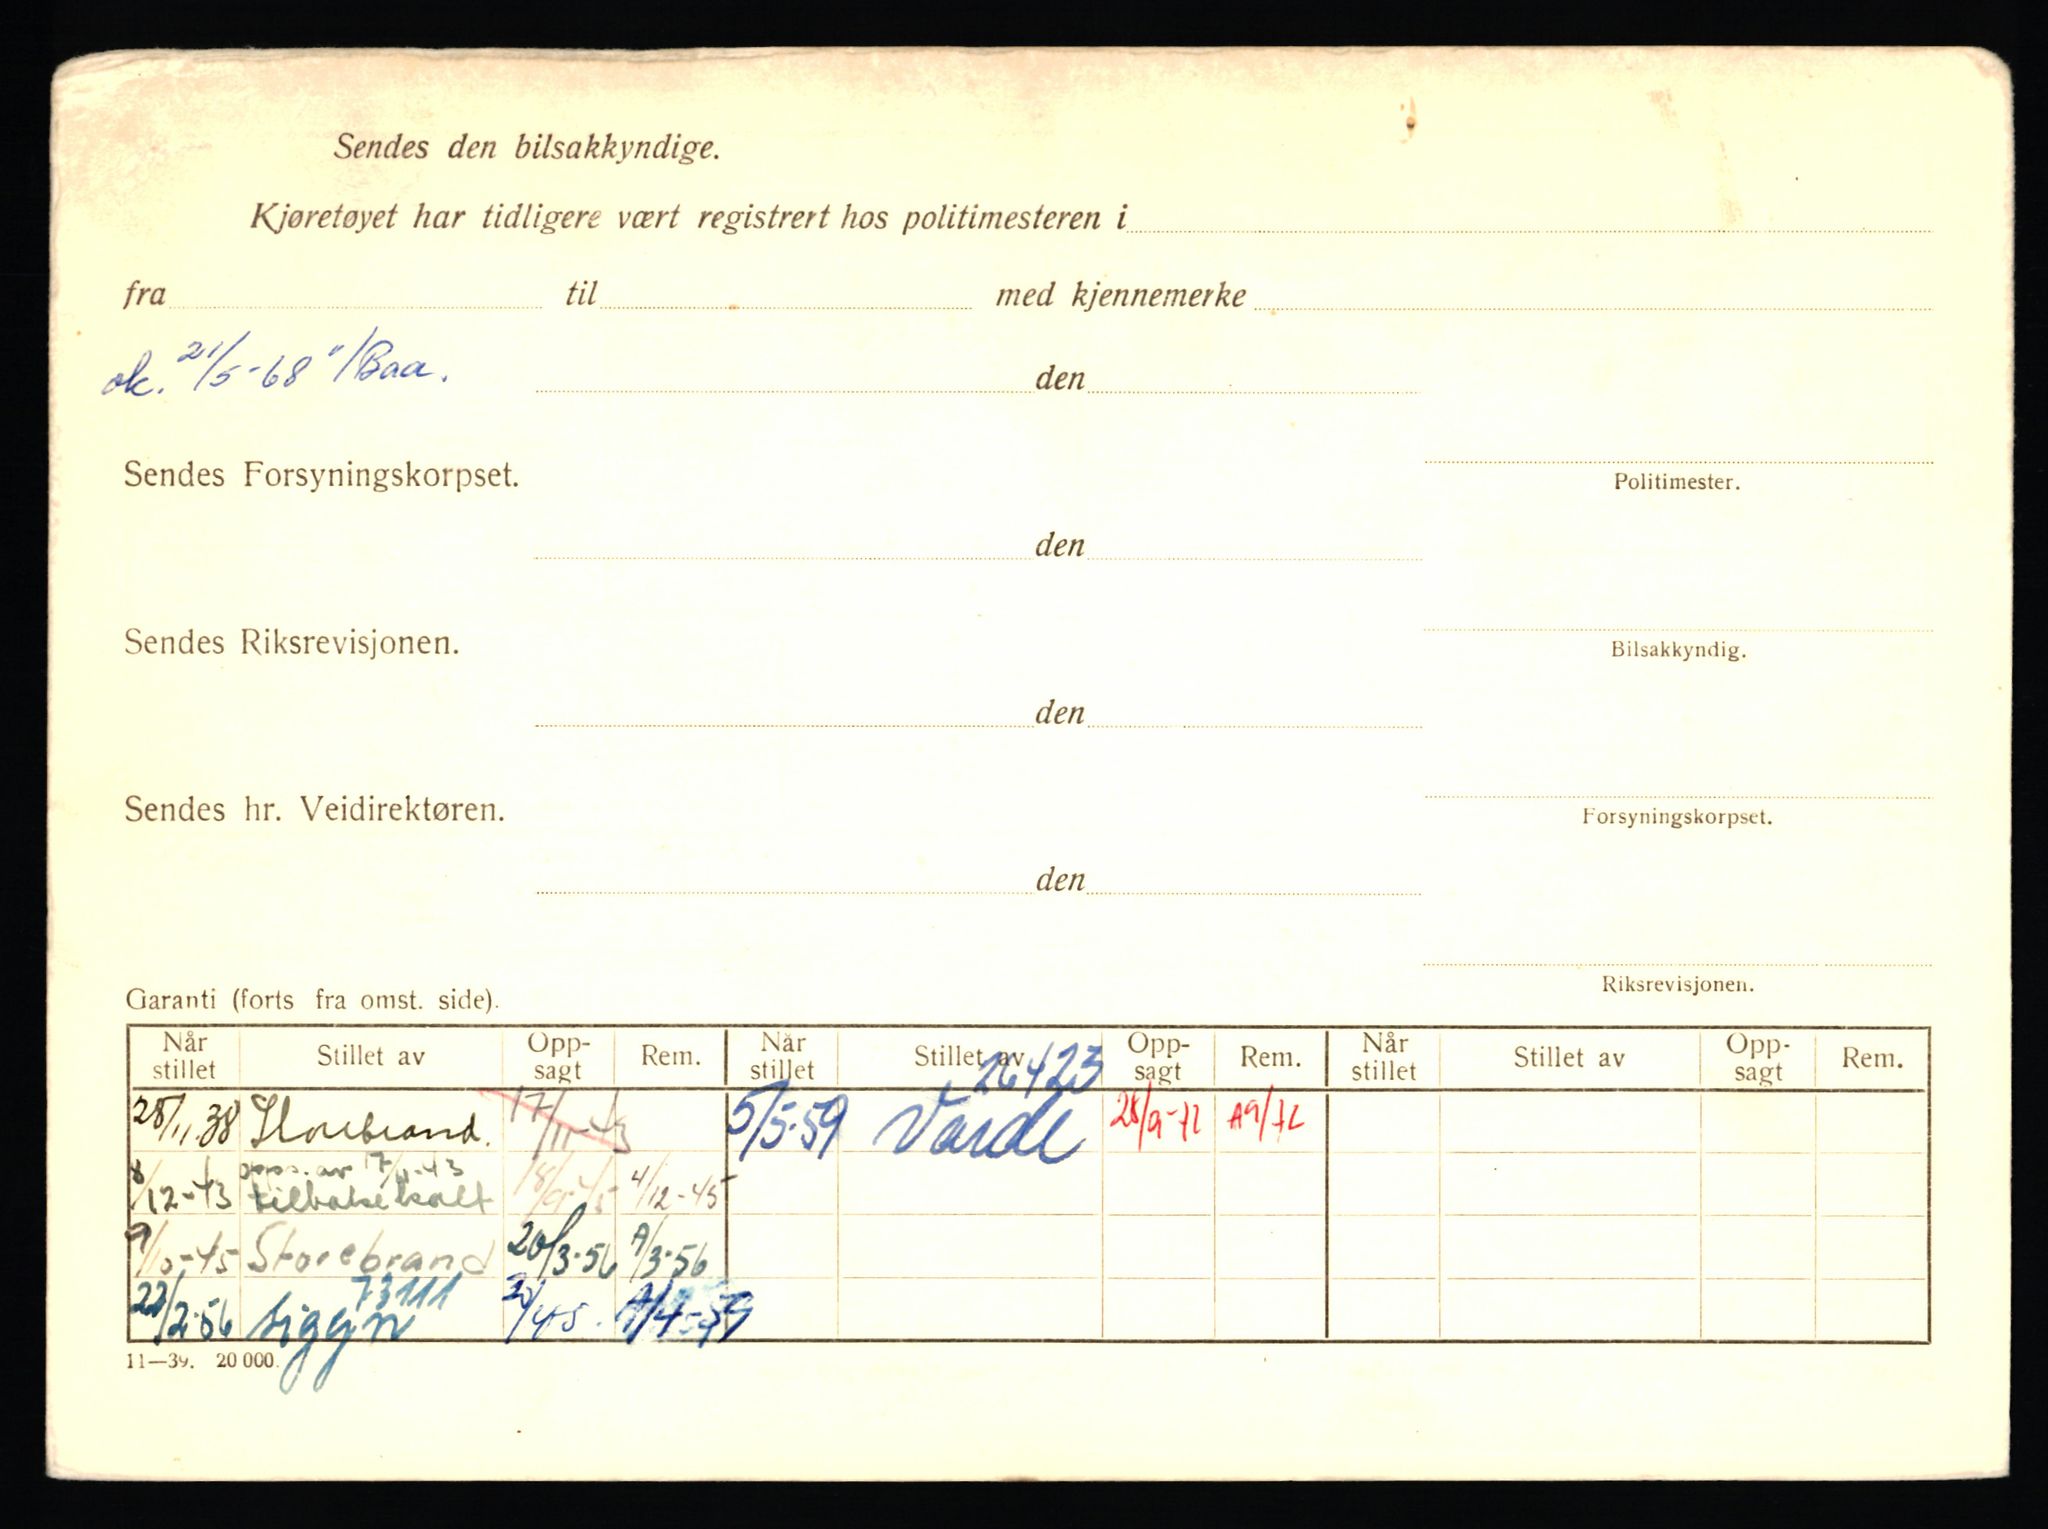 Sendes den bilsakkyndige.
Kjøretøyet har tidligere vært registrert hos politimesteren i
fra til med kjennemerke
ok. 21/5-68 "/Baa.
den
Sendes Forsyningskorpset.
Politimester.
den
Sendes Riksrevisjonen.
Bilsakkyndig.
den
Sendes hr. Veidirektøren.
Forsyningskorpset.
den
Riksrevisjonen.
Garanti (forts fra omst. side).
Når stillet Stillet av Opp-sagt Rem. Når stillet Stillet av Opp-sagt Rem. Når stillet Stillet av Opp-sagt Rem.
26423
28/11.38 Storebrand. 17/11-43 5/5-59 Varde 28/9-72 A9/72
opps. av 17/11-43
8/12-43 tilbakekalt 18/9-45 4/12-45
9/10-45 Storebrand 20/3-56 A/3-56
73111
22/2-56 Sigyn A/4-59
11—39. 20 000.